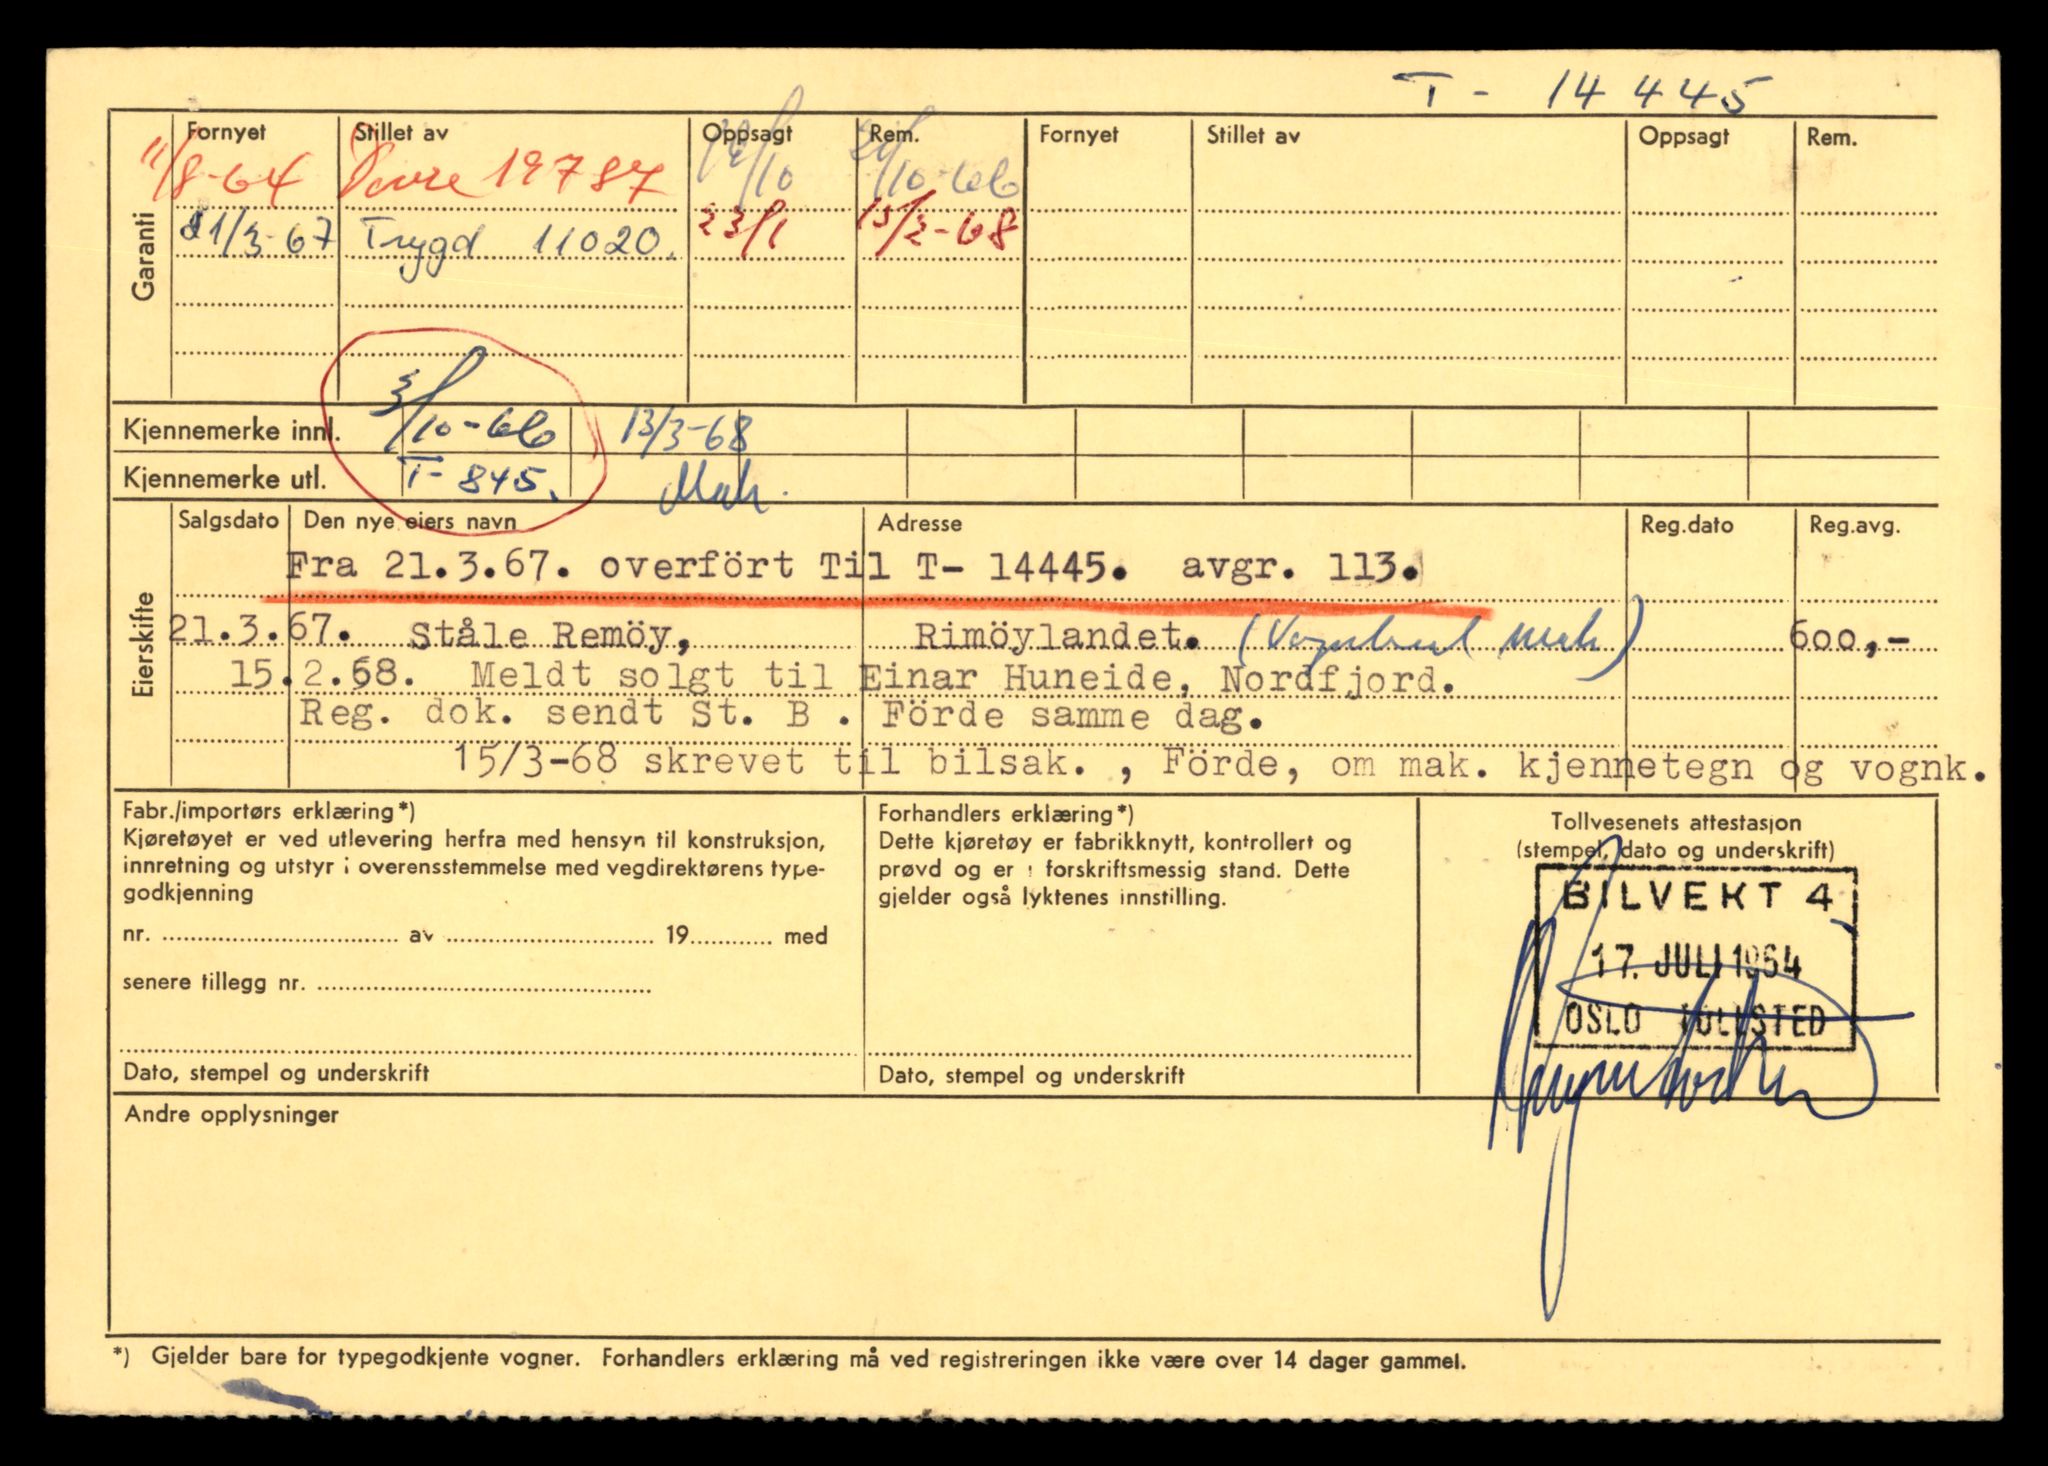 T - 14445
Fornyet Stillet av Oppsagt Rem. Fornyet Stillet av Oppsagt Rem.
11/8-64 19787 /10 /10-66
21/3-67 Trygd 11020. 23/1 15/2-68
Garanti
Kjennemerke innl. 3/10-66 13/3-68
Kjennemerke utl. T- 845. Mak.
Salgsdato Den nye eiers navn Adresse Reg.dato Reg.avg.
Fra 21.3.67. overfört Til T- 14445. avgr. 113.
21.3.67. Ståle Remöy, Rimöylandet. ( mak) 600,-
15.2.68. Meldt solgt til Einar Huneide, Nordfjord.
Reg. dok. sendt St. B . Förde samme dag.
15/3-68 skrevet til bilsak. , Förde, om mak. kjennetegn og vognk.
Eierskifte
Fabr./importørs erklæring*)
Kjøretøyet er ved utlevering herfra med hensyn til konstruksjon,
innretning og utstyr i overensstemmelse med vegdirektørens type-
godkjenning
nr. av 19 med
senere tillegg nr.
Dato, stempel og underskrift
Forhandlers erklæring*)
Dette kjøretøy er fabrikknytt, kontrollert og
prøvd og er i forskriftsmessig stand. Dette
gjelder også lyktenes innstilling.
Dato, stempel og underskrift
Tollvesenets attestasjon
(stempel, dato og underskrift)
BILVEKT 4
17. JULI 1964
OSLO TOLLSTED
Andre opplysninger
*) Gjelder bare for typegodkjente vogner. Forhandlers erklæring må ved registreringen ikke være over 14 dager gammel.